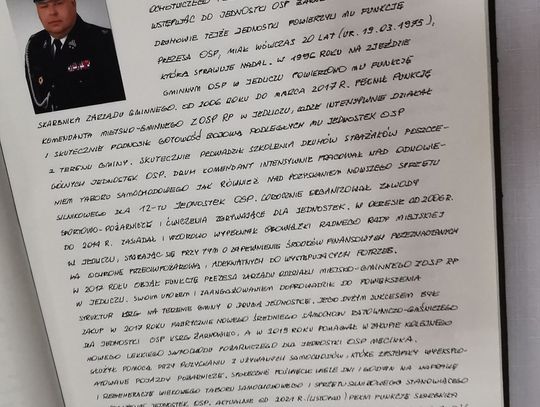 OCHOTNICZEGO
WSTĘPUJĄC DO JEDNOSTKI OSP
DRUHOWIE TEJŻE JEDNOSTKI POWIERZYLI MU FUNKCJĘ
PREZESA OSP, MIAŁ WÓWCZAS 20 LAT (UR. 19.03.1975),
KTÓRĄ SPRAWUJE NADAL. W 1996 ROKU NA ZJEŹDZIE
GMINNYM OSP W JEDLICZU POWIERZONO MU FUNKCJĘ
SKARBNIKA ZARZĄDU GMINNEGO. OD 2006 ROKU DO MARCA 2017 R. PEŁNIŁ FUNKCJĘ
KOMENDANTA MIEJSKO-GMINNEGO ZOSP RP W JEDLICZU, GDZIE INTENSYWNIE DZIAŁAŁ
I SKUTECZNIE PODNOSIŁ GOTOWOŚĆ BOJOWĄ PODLEGŁYCH MU JEDNOSTEK OSP
Z TERENU GMINY. SKUTECZNIE PROWADZIŁ SZKOLENIA DRUHÓW STRAŻAKÓW POSZCZE-
GÓLNYCH JEDNOSTEK OSP. DRUH KOMENDANT INTENSYWNIE PRACOWAŁ NAD ODNOWIE-
NIEM TABORU SAMOCHODOWEGO JAK RÓWNIEŻ NAD POZYSKANIEM NOWSZEGO SPRZĘTU
SILNIKOWEGO DLA 12-TU JEDNOSTEK OSP. COROCZNIE ORGANIZOWAŁ ZAWODY
SPORTOWO-POŻARNICZE I ĆWICZENIA ZGRYWAJĄCE DLA JEDNOSTEK. W OKRESIE OD 2006 R.
DO 2014 R. ZASIADAŁ I WZOROWO WYPEŁNIAŁ OBOWIĄZKI RADNEGO RADY MIEJSKIEJ
W JEDLICZU, STARAJĄC SIĘ PRZY TYM O ZAPEWNIENIE ŚRODKÓW FINANSOWYCH PRZEZNACZONYCH
NA OCHRONĘ PRZECIWPOŻAROWĄ I ADEKWATNYCH DO WYSTĘPUJĄCYCH POTRZEB.
W 2017 ROKU OBJĄŁ FUNKCJĘ PREZESA ZARZĄDU ODDZIAŁU MIEJSKO-GMINNEGO ZOSP RP
W JEDLICZU. SWOIM UPOREM I ZAANGAŻOWANIEM DOPROWADZIŁ DO POWIĘKSZENIA
STRUKTUR KSRG NA TERENIE GMINY O DRUGĄ JEDNOSTKĘ. JEGO DUŻYM SUKCESEM BYŁ
ZAKUP W 2017 ROKU FABRYCZNIE NOWEGO ŚREDNIEGO SAMOCHODU RATOWNICZO-GAŚNICZEGO
DLA JEDNOSTKI OSP KSRG ŻARNOWIEC. A W 2019 ROKU POMAGAŁ W ZAKUPIE KOLEJNEGO
NOWEGO LEKKIEGO SAMOCHODU POŻARNICZEGO DLA JEDNOSTKI OSP MĘCINKA.
SŁUŻYŁ POMOCĄ PRZY POZYSKANIU Z UŻYWANYCH SAMOCHODÓW, KTÓRE ZASTĄPIŁY WYEKSPLO-
ATOWANE POJAZDY POŻARNICZE. SPOŁECZNIE POŚWIĘCIŁ WIELE DNI I GODZIN NA NAPRAWĘ
I REGENERACJĘ WIEKOWEGO TABORU SAMOCHODOWEGO I SPRZĘTU SILNIKOWEGO STANOWIĄCEGO
JEDNOSTEK OSP. AKTUALNIE OD 2021 R. (LISTOPAD) PEŁNI FUNKCJĘ SKARBNIKA